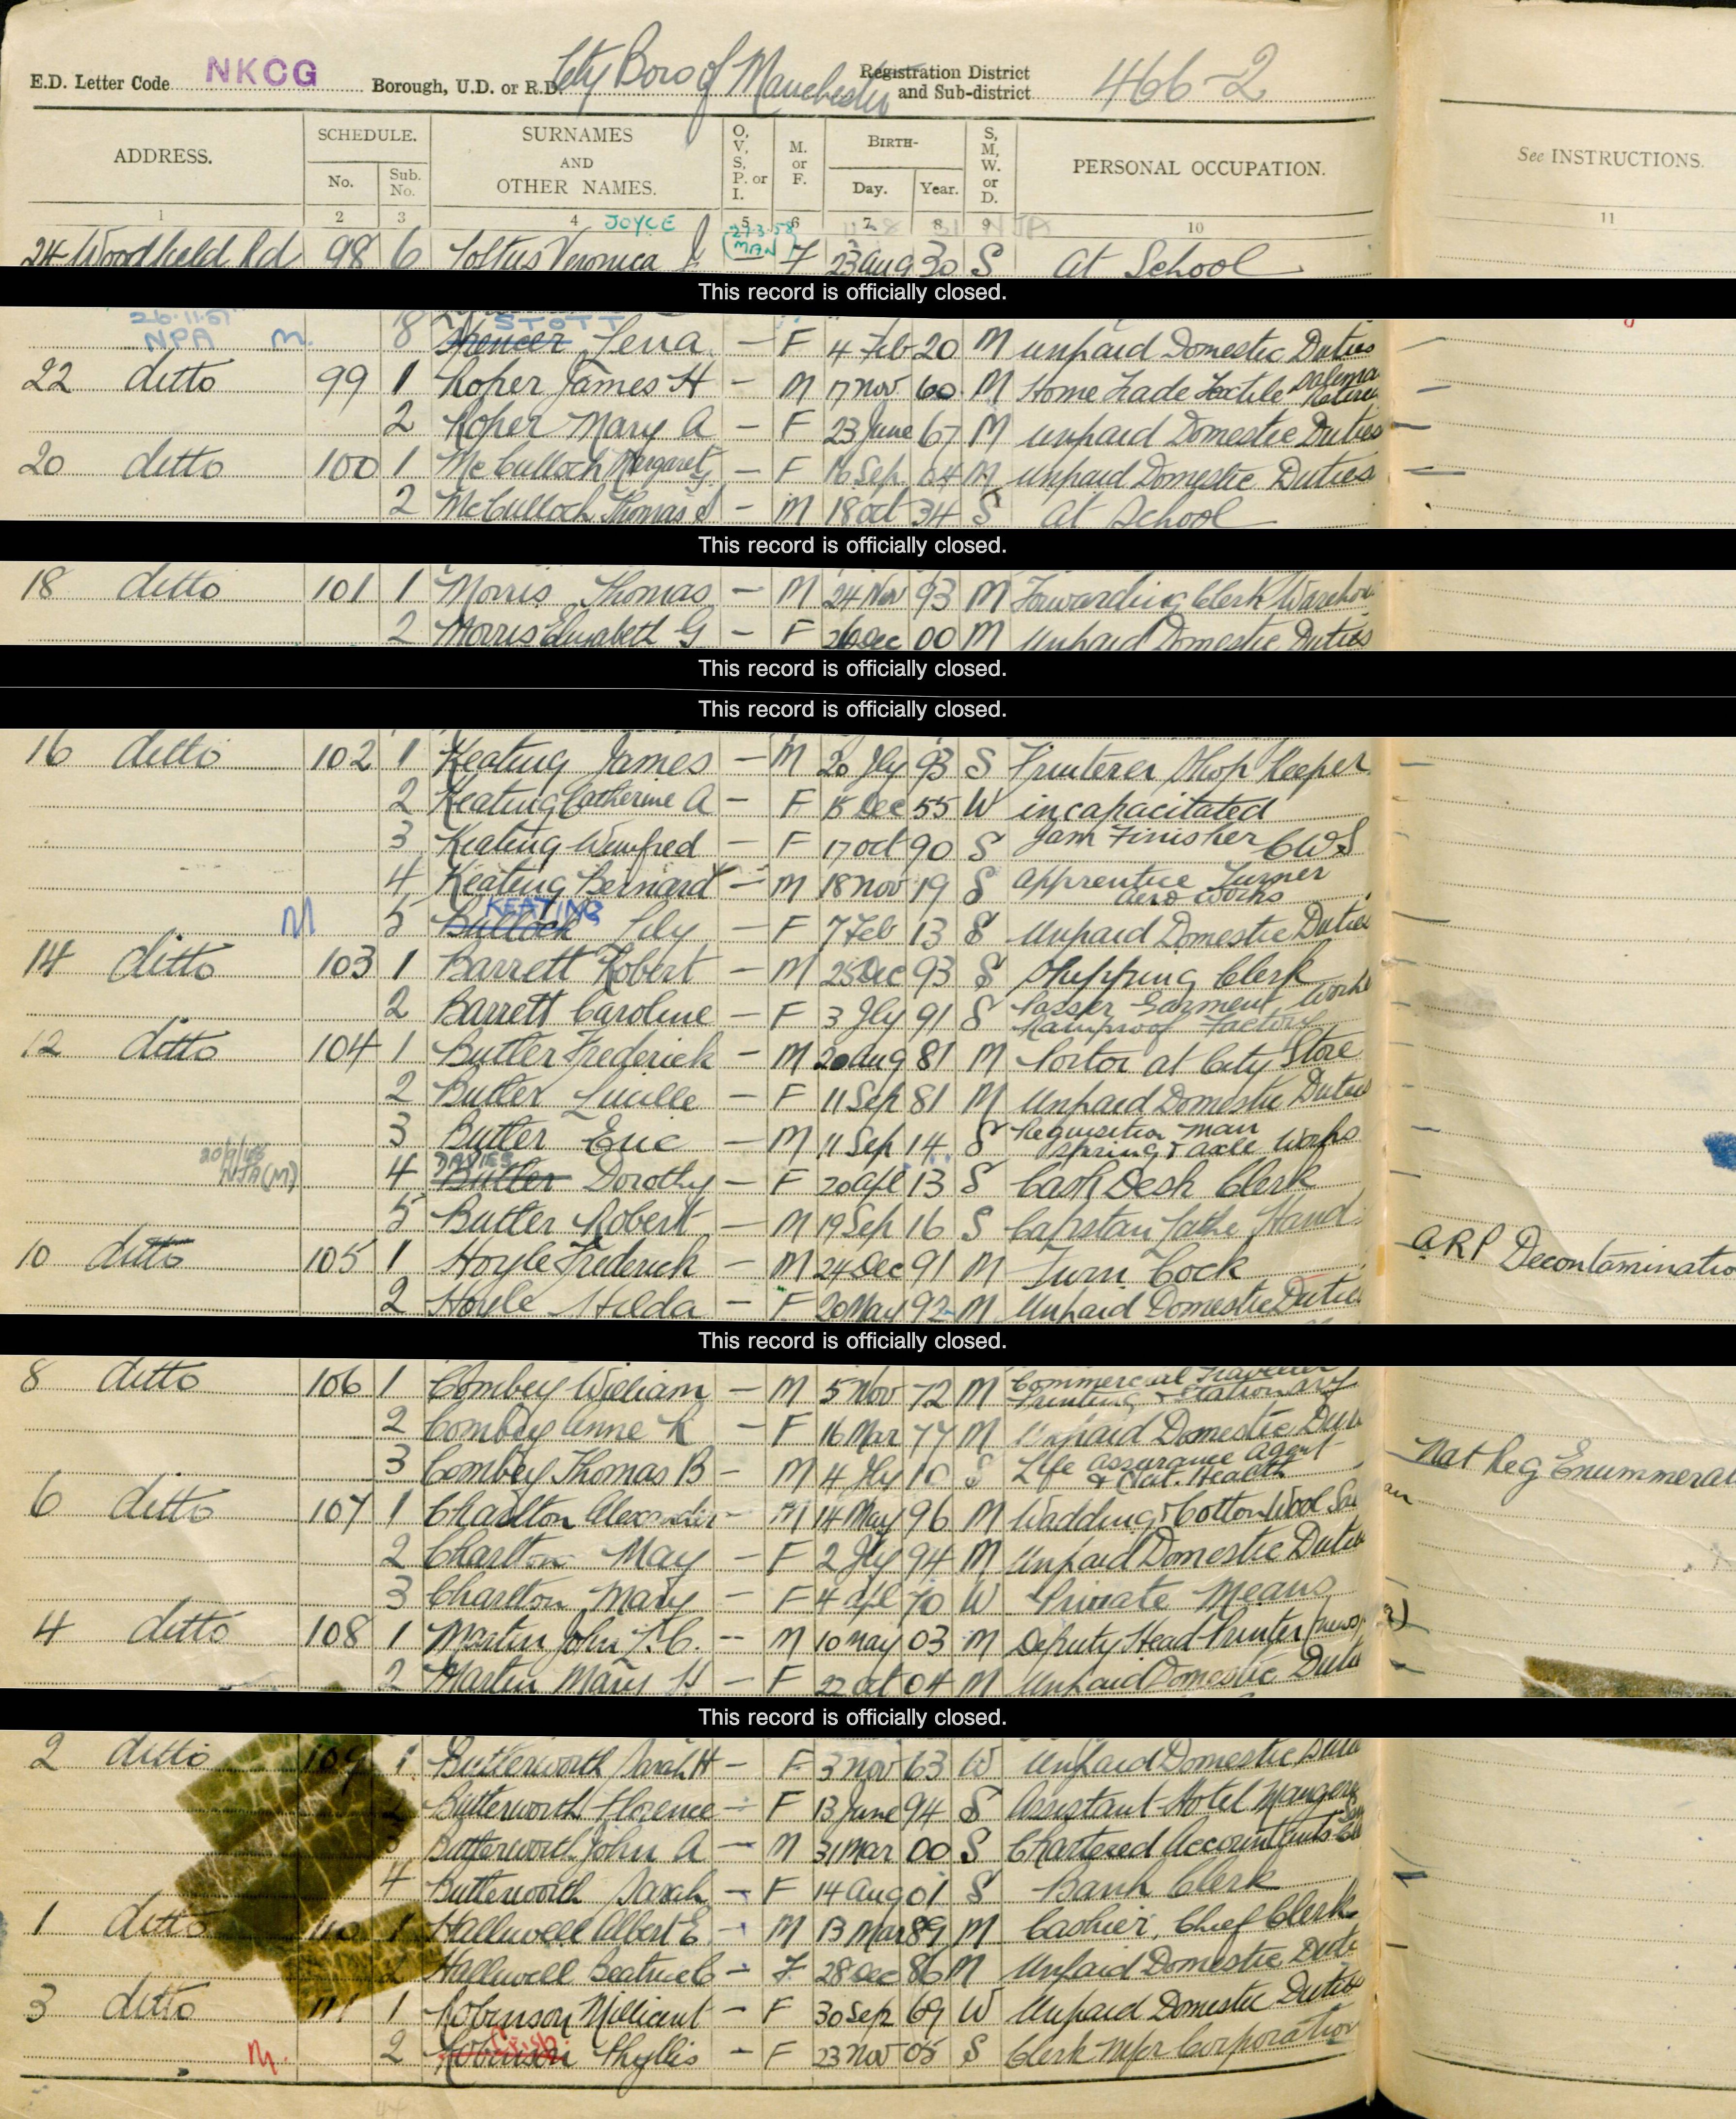 E.D. Letter Code NKCG Borough, U.D. or R.D. City Boro of Manchester Registration District and Sub-district 466-2
ADDRESS. SCHEDULE. No. Sub. No. SURNAMES AND OTHER NAMES. O, V, S, P. or I. M. or F. BIRTH- Day. Year. S, M, W. or D. PERSONAL OCCUPATION. See INSTRUCTIONS.
1 2 3 4 5 6 7 8 9 10 11
JOYCE 27.3.58 (MAN)
24 Woodfield Rd 98 6 Loftus Veronica J F 23 Aug 30 S At School
This record is officially closed.
NPA M. STOTT
8 Spencer Lena – F 4 Feb 20 M Unpaid Domestic Duties
22 ditto 99 1 Roper James H – M 17 Nov 60 M Home Trade Textile Salesman
2 Roper Mary A – F 23 June 67 M Unpaid Domestic Duties
20 ditto 100 1 McCulloch Margaret – F 16 Sep 64 M Unpaid Domestic Duties
2 McCulloch Thomas – M 18 Oct 34 S At School
This record is officially closed.
18 ditto 101 1 Morris Thomas – M 24 Nov 93 M Forwarding Clerk
2 Morris Elizabeth G – F 26 Dec 00 M Unpaid Domestic Duties
This record is officially closed.
This record is officially closed.
16 ditto 102 1 Keating James – M 20 Jly 93 S Fruiterer Shop Keeper
2 Keating Catherine A – F 15 Dec 55 W incapacitated
3 Keating Winifred – F 17 Oct 90 S Jam Finisher CWS
4 Keating Bernard – M 18 Nov 19 S Apprentice Turner Aero Works
M KEATING
5 Bullock Lily – F 7 Feb 13 S Unpaid Domestic Duties
14 ditto 103 1 Barrett Robert – M 25 Dec 93 S Shipping Clerk
2 Barrett Caroline – F 3 Jly 91 S Passer Garment Works Rainproof Factory
12 ditto 104 1 Butler Frederick – M 20 Aug 81 M Portor at City Store
2 Butler Lucille – F 11 Sep 81 M Unpaid Domestic Duties
3 Butler Eric – M 11 Sep 14 S Requisition Man Spring & Axle Works
NJA(M) DAVIES
4 Butler Dorothy – F 20 Apl 13 S Cash Desk Clerk
5 Butler Robert – M 19 Sep 16 S Capstan Lathe Hand
10 ditto 105 1 Hoyle Frederick – M 24 Dec 91 M Turn Cock ARP Decontaminatio
2 Hoyle Hilda – F 20 May 92 M Unpaid Domestic Duties
This record is officially closed.
8 ditto 106 1 Combey William – M 5 Nov 72 M Commercial Traveller Printing & Stationary
2 Combey Anne K – F 16 Mar 77 M Unpaid Domestic Duti
3 Combey Thomas B – M 4 Jly 10 S Life Assurance Agent & Nat. Health Nat Reg Enummerat
6 ditto 107 1 Charlton Alexander – M 14 May 96 M Wadding & Cotton Wool
2 Charlton May – F 2 Jly 94 M Unpaid Domestic Duties
3 Charlton Mary – F 4 Apl 70 W Private Means
4 ditto 108 1 Martin John – M 10 May 03 M Deputy Head Printer
2 Martin Mary H – F 22 Oct 04 M Unpaid Domestic Duties
This record is officially closed.
2 ditto 109 1 Butterworth Sarah H – F 3 Nov 63 W Unpaid Domestic Duties
Butterworth Florence – F 13 June 94 S Assistant Hotel
3 Butterworth John A – M 31 Mar 00 S Chartered Accountants
4 Butterworth Sarah – F 14 Aug 01 S Bank Clerk
1 ditto 110 1 Halliwell Albert E – M 13 Mar 89 M Cashier, Chief Clerk
2 Halliwell Beatrice – F 28 Dec 86 M Unpaid Domestic Duti
3 ditto 111 1 Robinson Millicent – F 30 Sep 69 W Unpaid Domestic Duties
M. 2 Robinson Phyllis – F 23 Nov 05 S Clerk M/cr Corporation